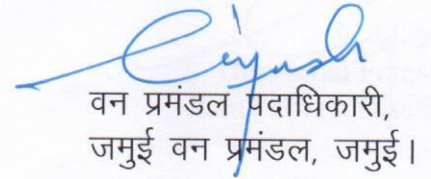 वन प्रमंडल पदाधिकारी,
जमुई वन प्रमंडल, जमुई।